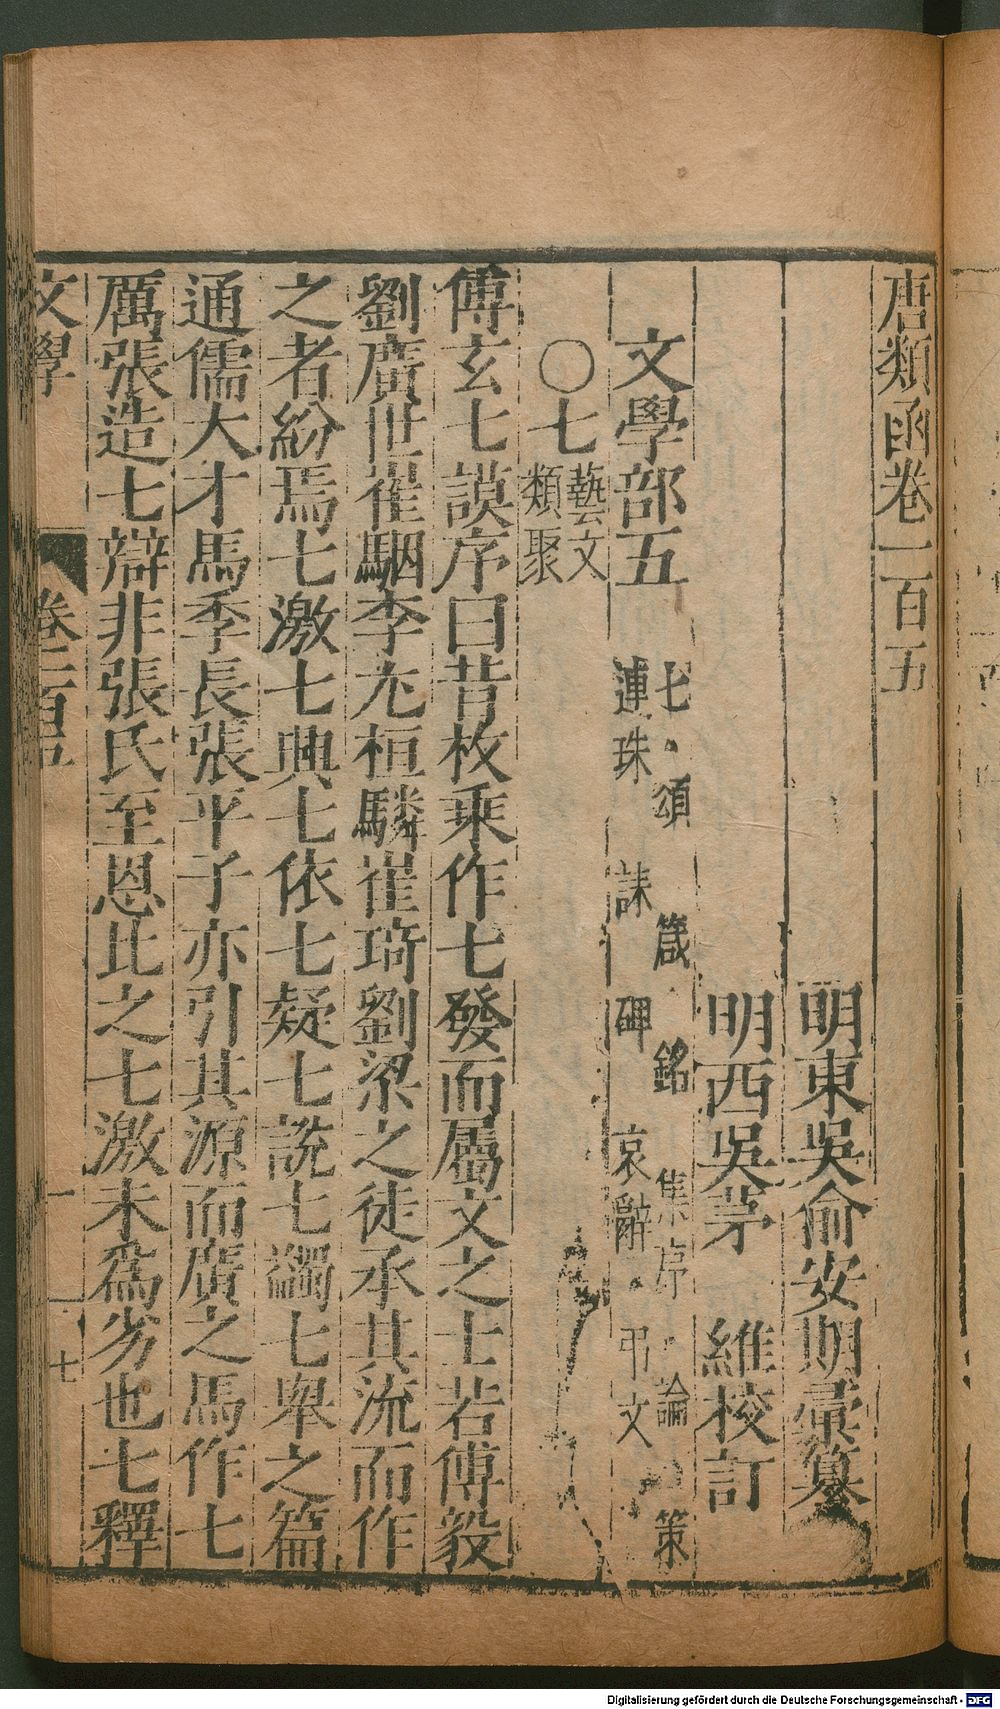 唐類函卷一百五
明東吳俞安期彙纂
明西吳茅 維校訂
文學部五 七 頌 箴 銘 集序 論 策
連珠 誄 碑 哀辭 弔文
〇七 藝文
類聚
傅玄七謨序曰昔枚乘作七發而屬文之士若傅毅
劉廣世崔駰李尤桓驎崔琦劉梁之徒承其流而作
之者紛焉七激七興七依七疑七說七蠲七舉之篇
通儒大才馬季長張平子亦引其源而廣之馬作七
厲張造七辯非張氏至思比之七激未為劣也七釋
文學 卷一百五 一 七
Digitalisierung gefördert durch die Deutsche Forschungsgemeinschaft - DFG